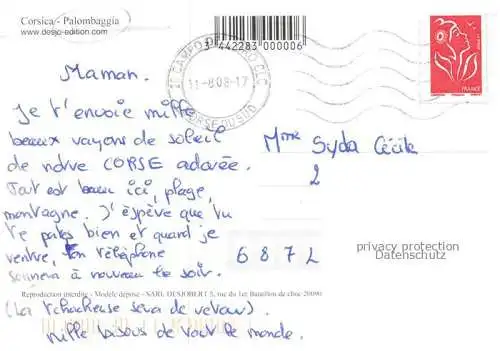 Corsica - Palombaggia
www.desjo-edition.com
3 442283 000006
11-8 08-17
CORSE DU SUD
FRANCE
Maman.
Je t'envoie mille
beaux rayons de soleil
de notre CORSE adorée.
Tout est beau ici, plage,
montagne. J'éspère que tu
te portes bien et quand je
rentre, ton téléphone
sonnera à nouveau le soir.
(La rchacheuse sera de retour).
mille bisous de tout le monde.
Mme Syda Cécile
2
6872
privacy protection
Datenschutz
Reproduction interdite - Modèle déposé - SARL DESJOBERT 5, rue du 1er Bataillon de choc 20090